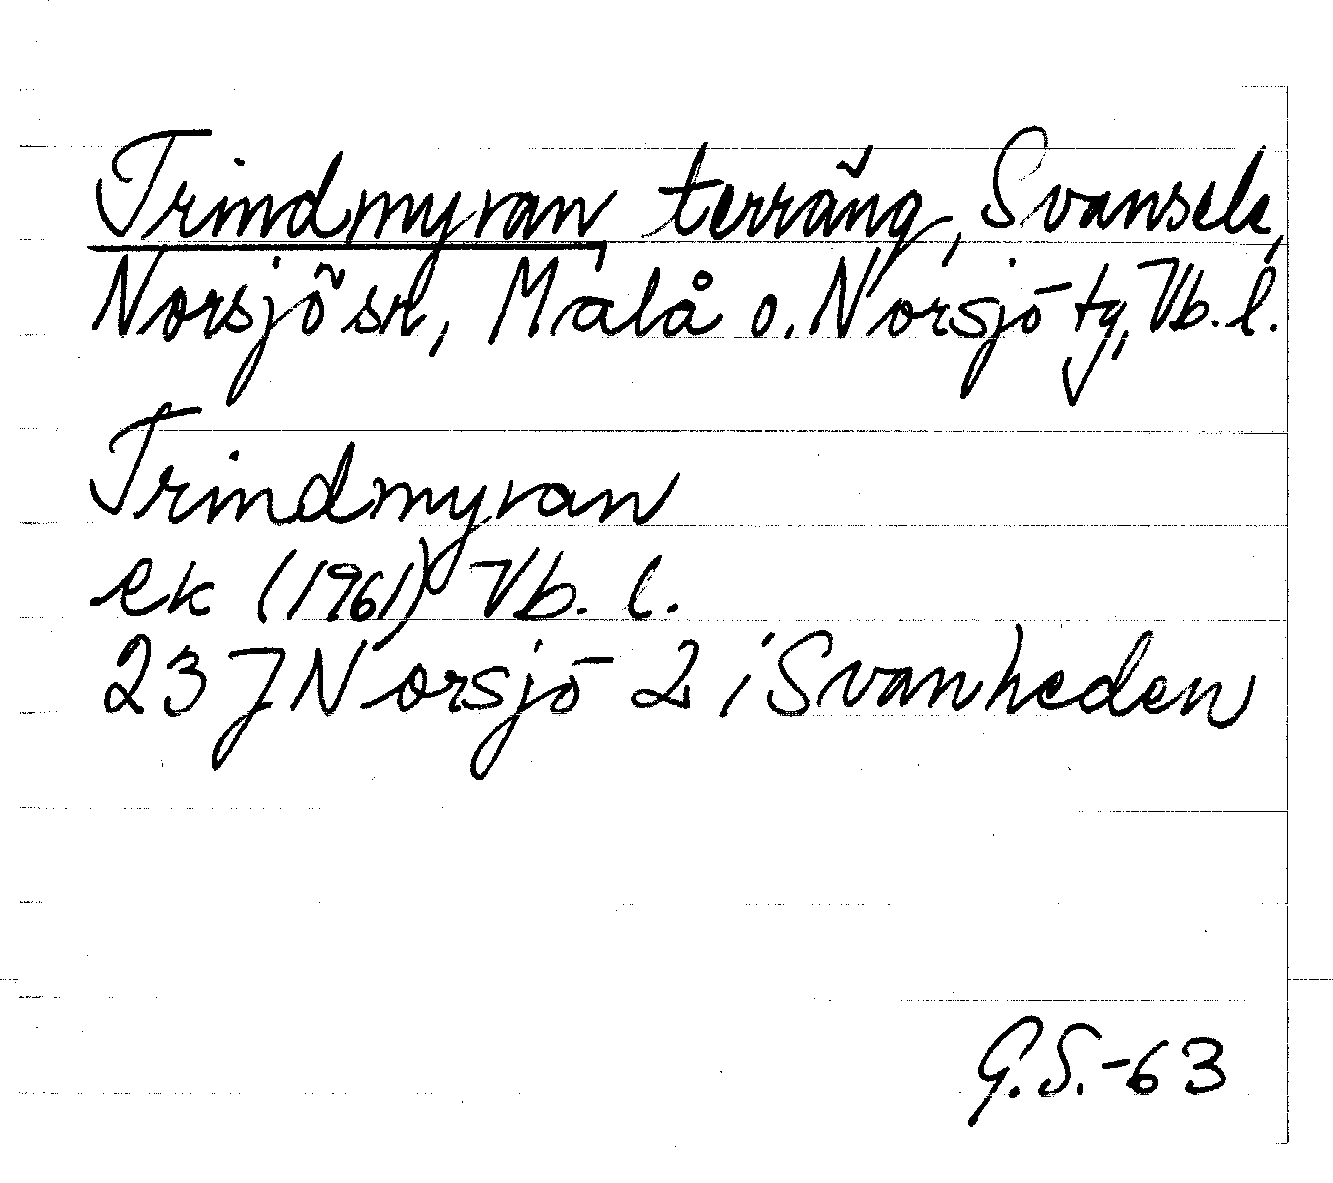 Trindmyran, terräng, Svansele,
Norsjö sn, Malå o. Norsjö tg, Vb. l.
Trindmyran
ek (1961) Vb. l.
23 J Norsjö 2 i Svanheden
G.S.-63